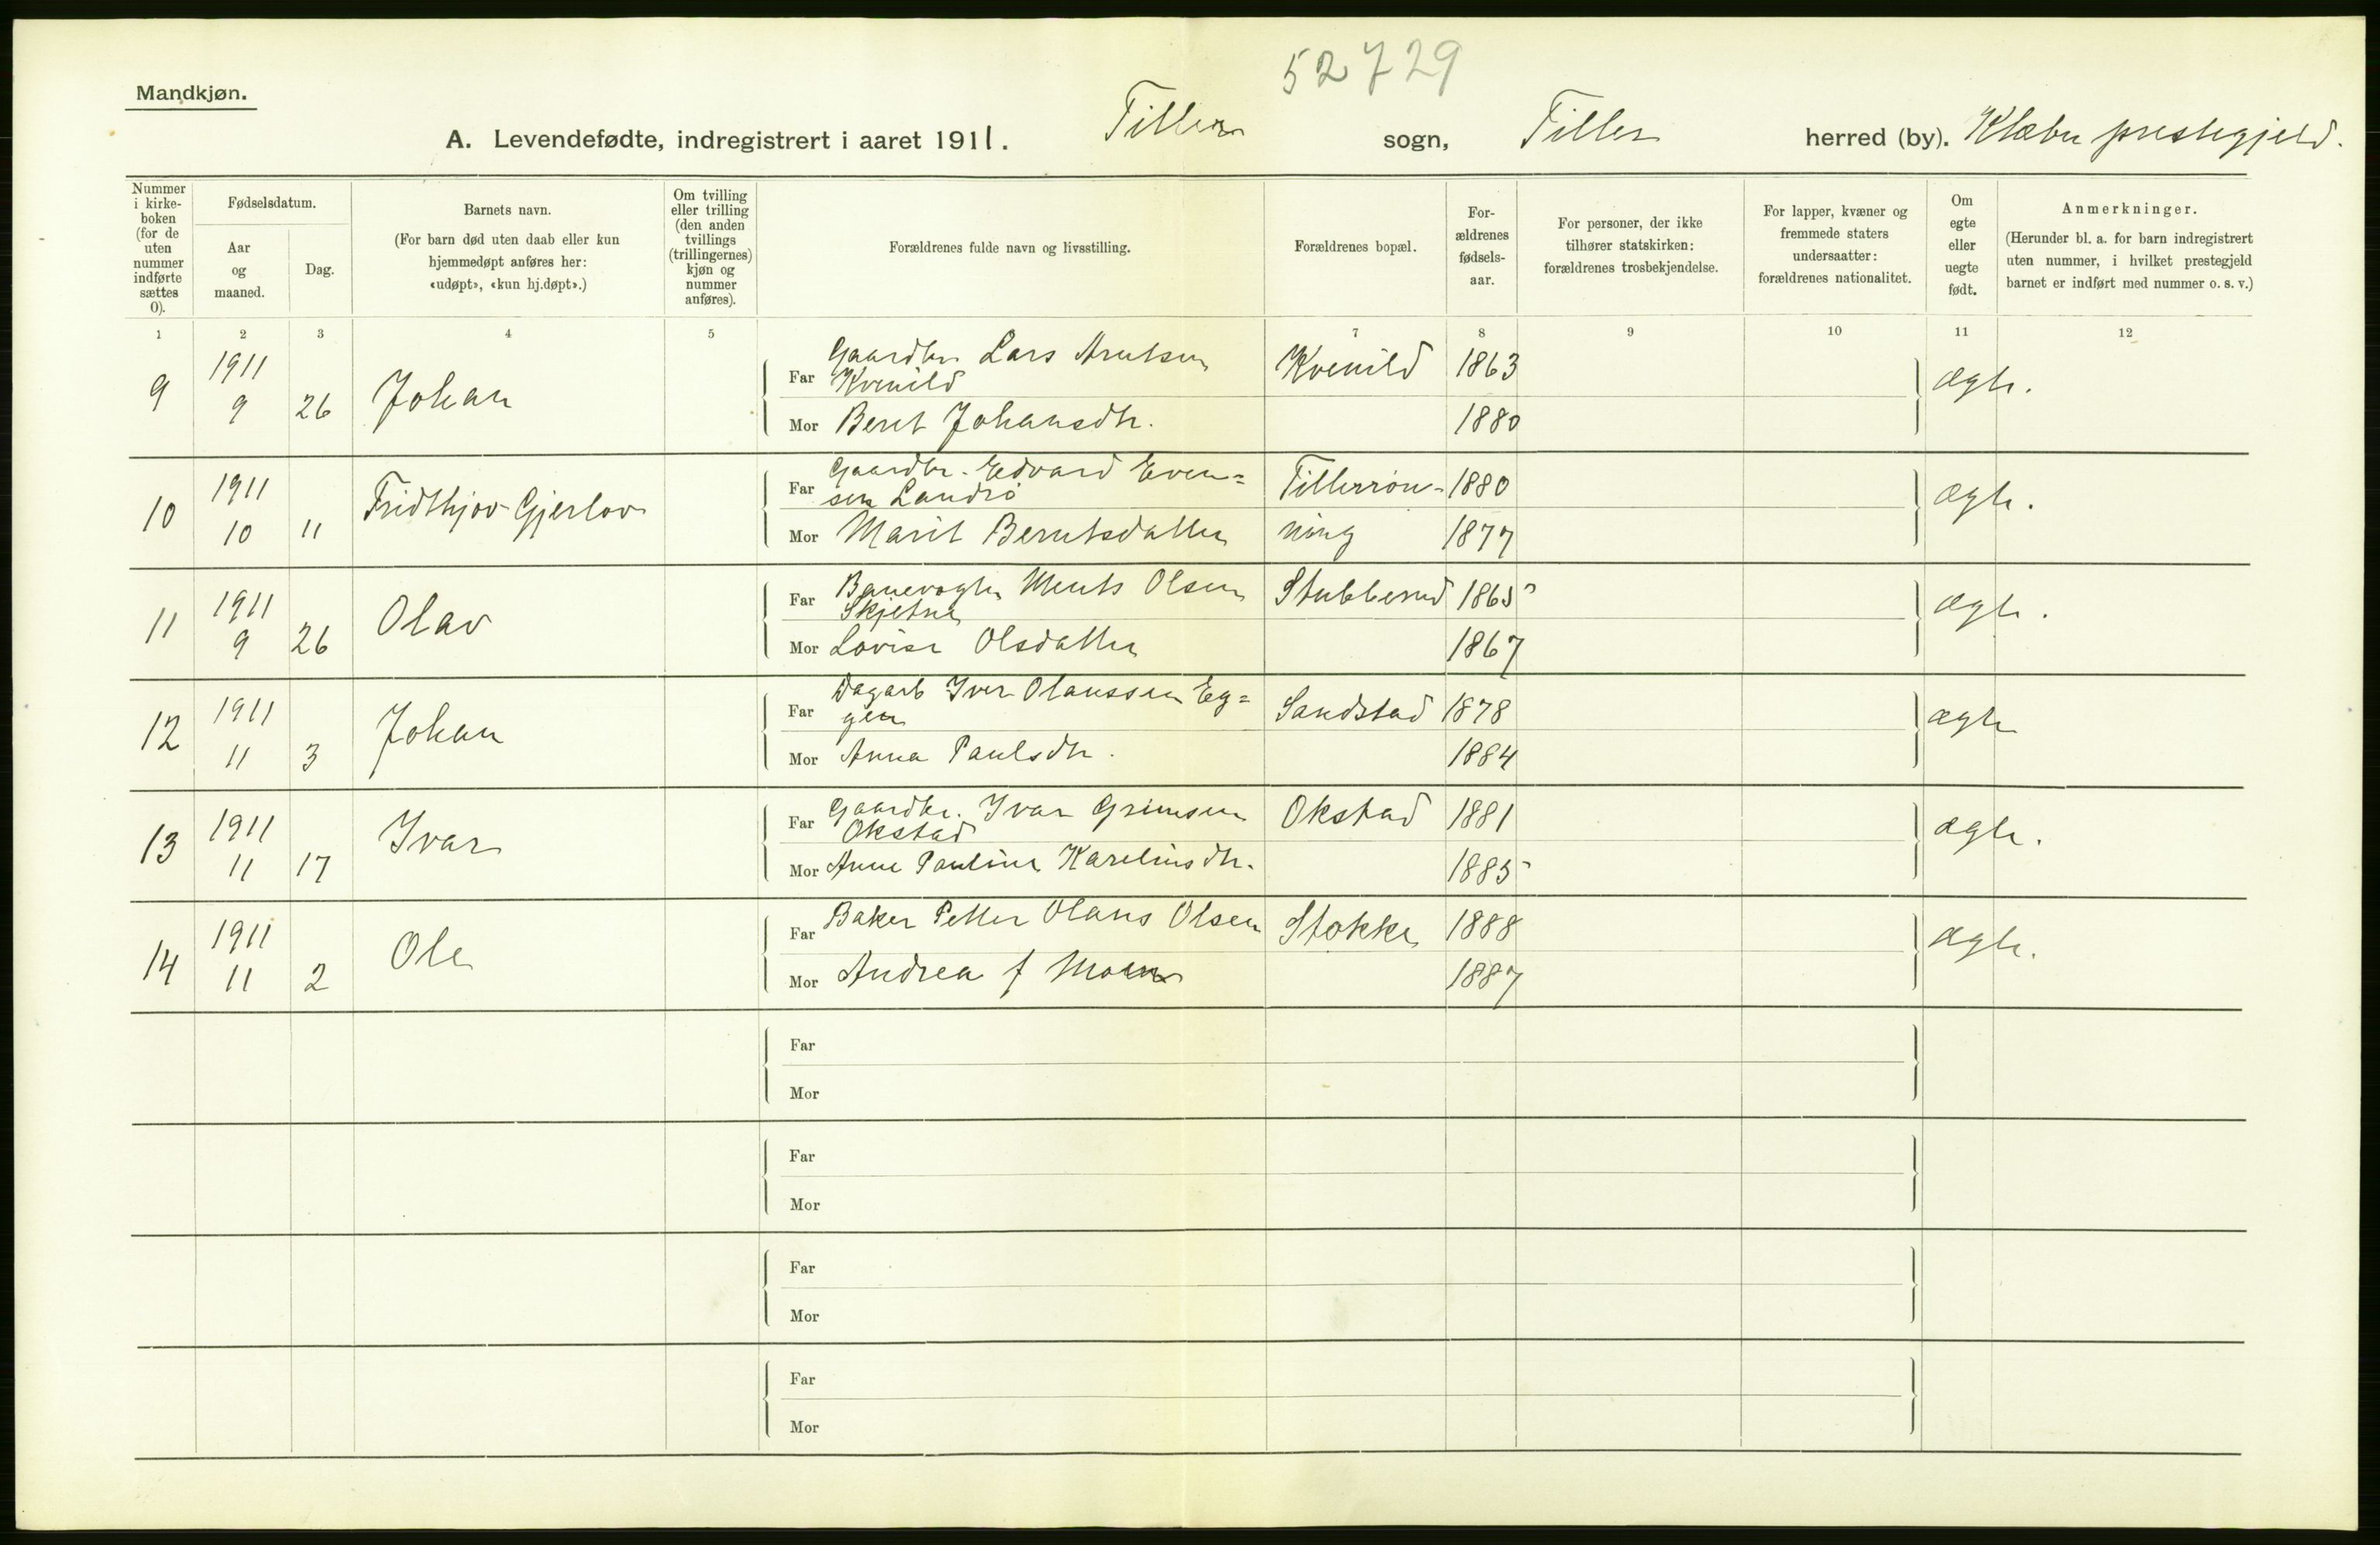 52729
Mandkjøn.
A. Levendefødte, indregistrert i aaret 1911. Tiller sogn, Tiller herred (by). Klæbu prestegjeld.
Nummer i kirke-boken (for de uten nummer indførte sættes 0).
Fødselsdatum.
Aar og maaned.
Dag.
Barnets navn.
(For barn død uten daab eller kun hjemmedøpt anføres her: «udøpt», «kun hj.døpt».)
Om tvilling eller trilling (den anden tvillings (trillingernes) kjøn og nummer anføres).
Forældrenes fulde navn og livsstilling.
Forældrenes bopæl.
For-ældrenes fødsels-aar.
For personer, der ikke tilhører statskirken: forældrenes trosbekjendelse.
For lapper, kvæner og fremmede staters undersaatter: forældrenes nationalitet.
Om egte eller uegte født.
Anmerkninger.
(Herunder bl. a. for barn indregistrert uten nummer, i hvilket prestegjeld barnet er indført med nummer o. s. v.)
1 2 3 4 5 7 8 9 10 11 12
9 1911 9 26 Johan
Far Gaardbr. Lars Arntsen Kvenild Kvenild 1863 ægte.
Mor Beret Johansdtr. 1880
10 1911 10 11 Fridthjov Gjerlov
Far Gaardbr. Edvard Even=
sen Landrö Tillerrön- 1880 ægte.
Mor Marit Berntsdatter ning 1877
11 1911 9 26 Olav
Far Banevogter Ments Olsen
Skjetne Stubberud 1865 ægte.
Mor Lovise Olsdatter 1867
12 1911 11 3 Johan
Far Dagarb Iver Olaussen Eg=
gen Sandstad 1878 ægte
Mor Anna Paulsdtr. 1884
13 1911 11 17 Ivar
Far Gaardbr. Ivar Grimsen
Okstad Okstad 1881 ægte.
Mor Anne Pauline Kareliusdtr. 1885
14 1911 11 2 Ole
Far Baker Petter Olaus Olsen Stokke 1888 ægte.
Mor Andrea f Moen 1887
Far
Mor
Far
Mor
Far
Mor
Far
Mor